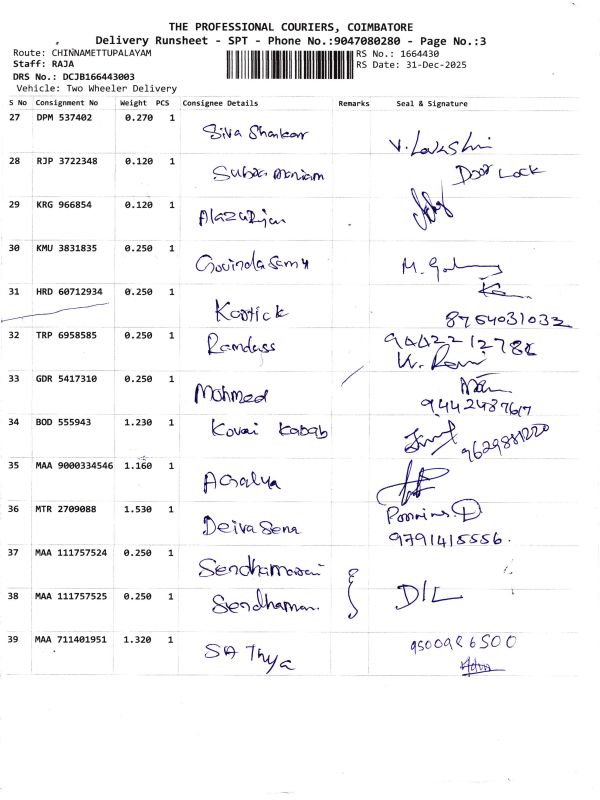 THE PROFESSIONAL COURIERS, COIMBATORE
Delivery Runsheet - SPT - Phone No.:9047080280 - Page No.:3
Route: CHINNAMETTUPALAYAM RS No.: 1664430
Staff: RAJA RS Date: 31-Dec-2025
DRS No.: DCJB166443003
Vehicle: Two Wheeler Delivery
S No Consignment No Weight PCS Consignee Details Remarks Seal & Signature
27 DPM 537402 0.270 1 Siva Shankar V. Loukshi
28 RJP 3722348 0.120 1 Subramaniam Door Lock
29 KRG 966854 0.120 1 Alazurjan
30 KMU 3831835 0.250 1 Govindasamy
31 HRD 60712934 0.250 1 Kartick 8754031032
32 TRP 6958585 0.250 1 Ramdass
33 GDR 5417310 0.250 1 Mohmed
34 BOD 555943 1.230 1 Kovai Kabab
35 MAA 9000334546 1.160 1
36 MTR 2709088 1.530 1 Deivasena
9791415556.
37 MAA 111757524 0.250 1
38 MAA 111757525 0.250 1 D/L
39 MAA 711401951 1.320 1 SATHya